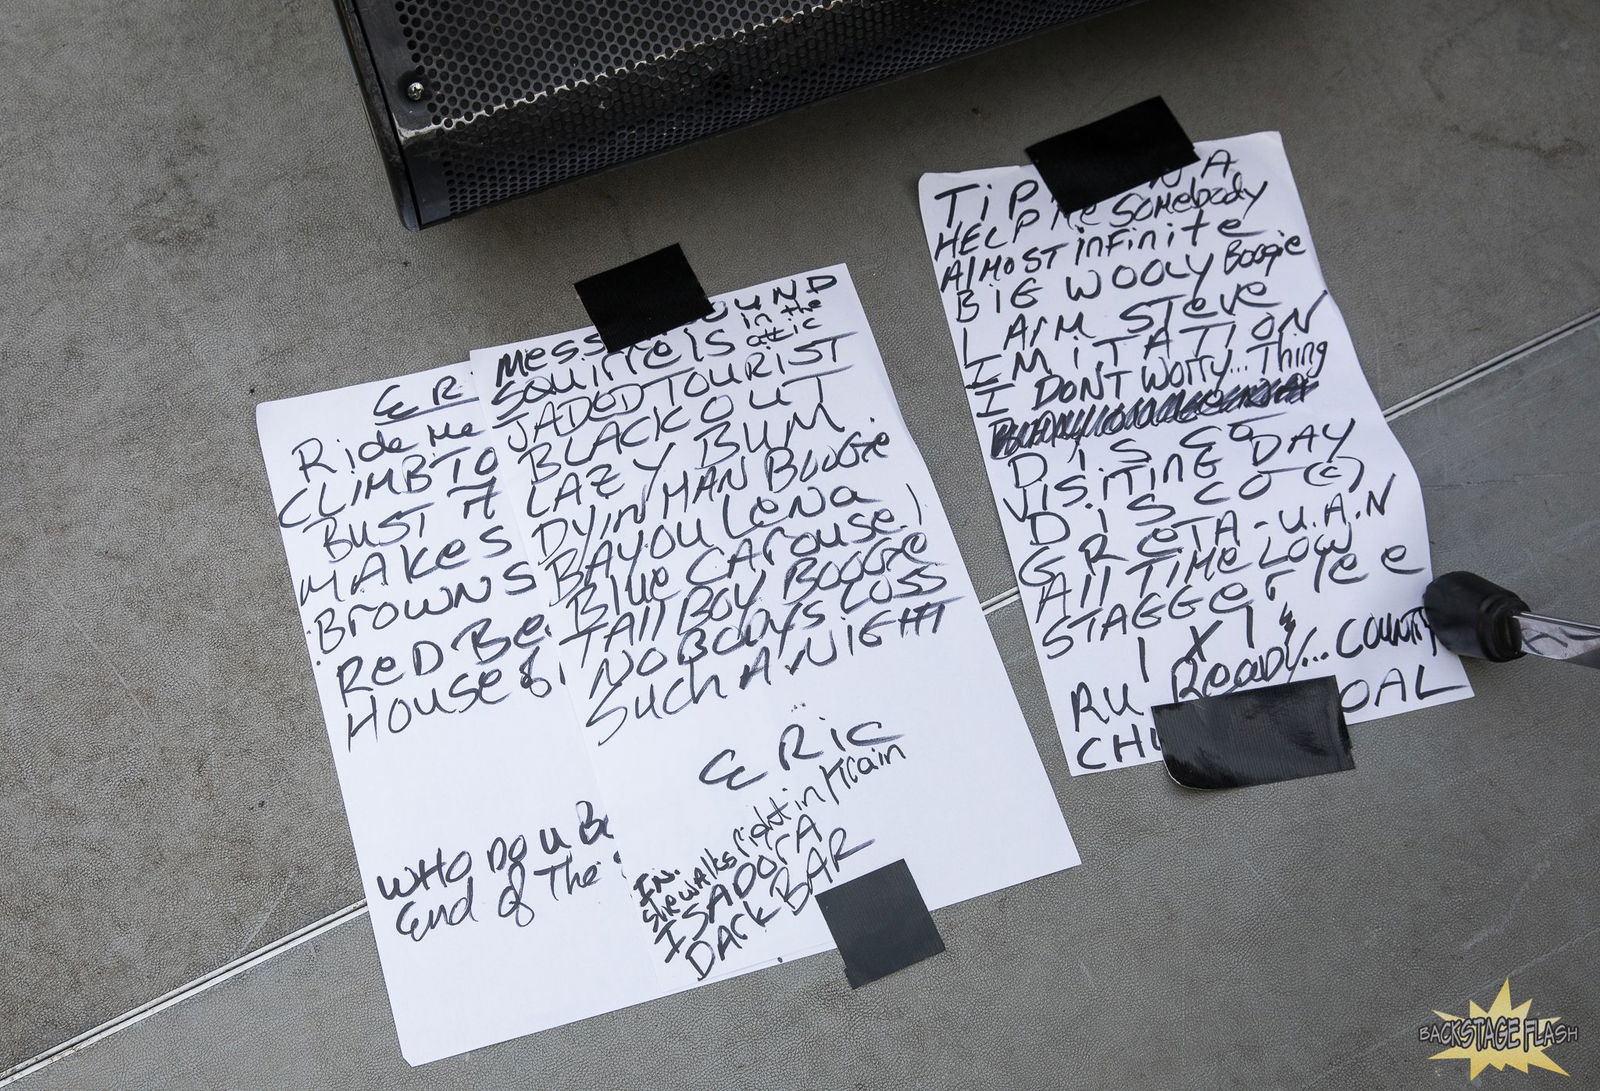 ER
Ride Me
CLIMB TO
BUST A
MAKES
BROWNS
RED BE
HOUSE &
WHO DO U Be
End of The
MESS UND
SQUIRRELS in the attic
JADED TOURIST
BLACK OUT
LAZY BUM
DYIN MAN BOOGIE
BAYOU LENA
BLUE CAROUSEL
TALL BOY BOOGIE
NOBODYS LOSS
SUCH A NIGHT
ERIC
IN.
she walks right in / train
ISADORA
DARK BAR
TIP N A
HELP ME SOMEBODY
AlMOST infinite
BIG WOOLY Boogie
I ArM STEVE
IMITATION
I DONT WORRY... Thing
DIS
VISITING DAY
DISCO (C)
GRETA - U.A.N
All TIME LOW
STAGGERLEE
1 X 1
RU Ready... COUNTY
CHU OAL
BACKSTAGE FLASH